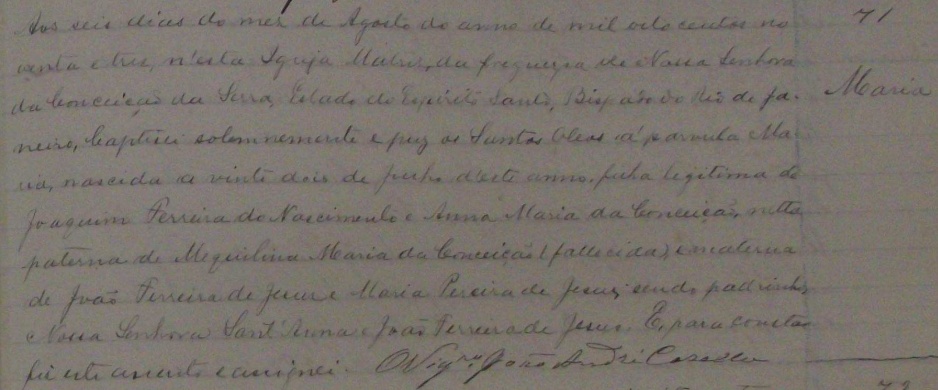 Aos seis dias do mez de Agosto do anno de mil oito centos no
venta e tres, n'esta Igreja Matriz, da freguezia de Nossa Senhora
da Conceição da Serra, Estado do Espirito Santo, Bispado do Rio de Ja-
neiro, baptisei solemnemente e puz os Santos Oleos á parvula Ma-
ria, nascida a vinte dois de Junho d'este anno, filha legitima de
Joaquim Ferreira do Nascimento e Anna Maria da Conceição, netta
paterna de Miquilina Maria da Conceição (fallecida), e materna
de João Ferreira de Jesus e Maria Pereira de Jesus, sendo padrinhos
Nossa Senhora Sant'Anna e João Ferreira de Jesus. E, para constar
fiz este assento e assignei. O Vigrº. João André
71
Maria
72